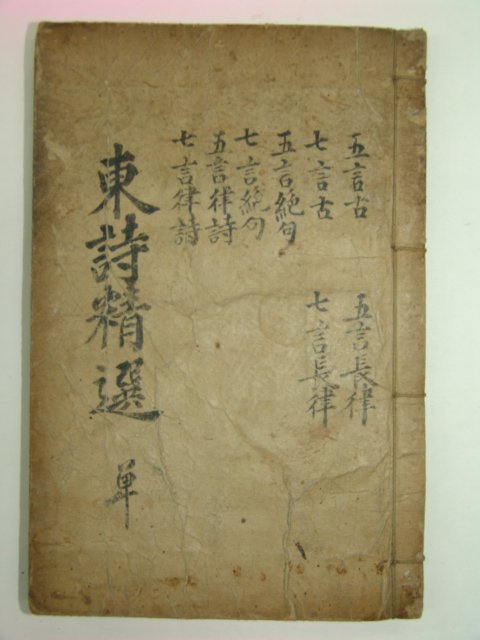 五言古
七言古
五言絶句
七言絶句
五言律詩
七言律詩
五言長律
七言長律
東詩精選
單